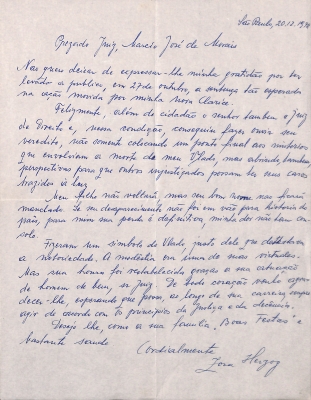 São Paulo, 20.12.1978
Prezado Juiz, Marcio José de Moraes
Não quero deixar de expressar-lhe minha gratidão por ter
levado a publico, em 27 de outubro, a sentença tão esperada
na ação movida por minha nora Clarice.
Felizmente, além de cidadão o senhor tambem é Juiz
de Direito e, nessa condição, conseguiu fazer ouvir seu
veredito, não somente colocando um ponto final aos mistérios
que envolviam a morte de meu Vlado, mas abrindo tambem
perspectivas para que outros injustiçados possam ter seus casos
trazidos à luz.
Meu filho não voltará, mas seu bom nome não ficará
manchado. Se seu desaparecimento não foi em vão para história do
país, para mim sua perda é definitiva, minha dor não tem con
solo.
Fizeram um símbolo de Vlado, justo dele que detestava
a notoriedade. A modestia era uma de suas virtudes.
Mas sua honra foi restabelecida graças a sua atuação
de homem de bem, sr Juiz. De todo coração venho agra
decer-lhe, esperando que possa, ao longo de sua carreira, sempre
agir de acordo com os principios da Justiça e da decência.
Desejo-lhe, como a sua familia, "Boas Festas" e
bastante saude
Cordialmente
Zora Herzog